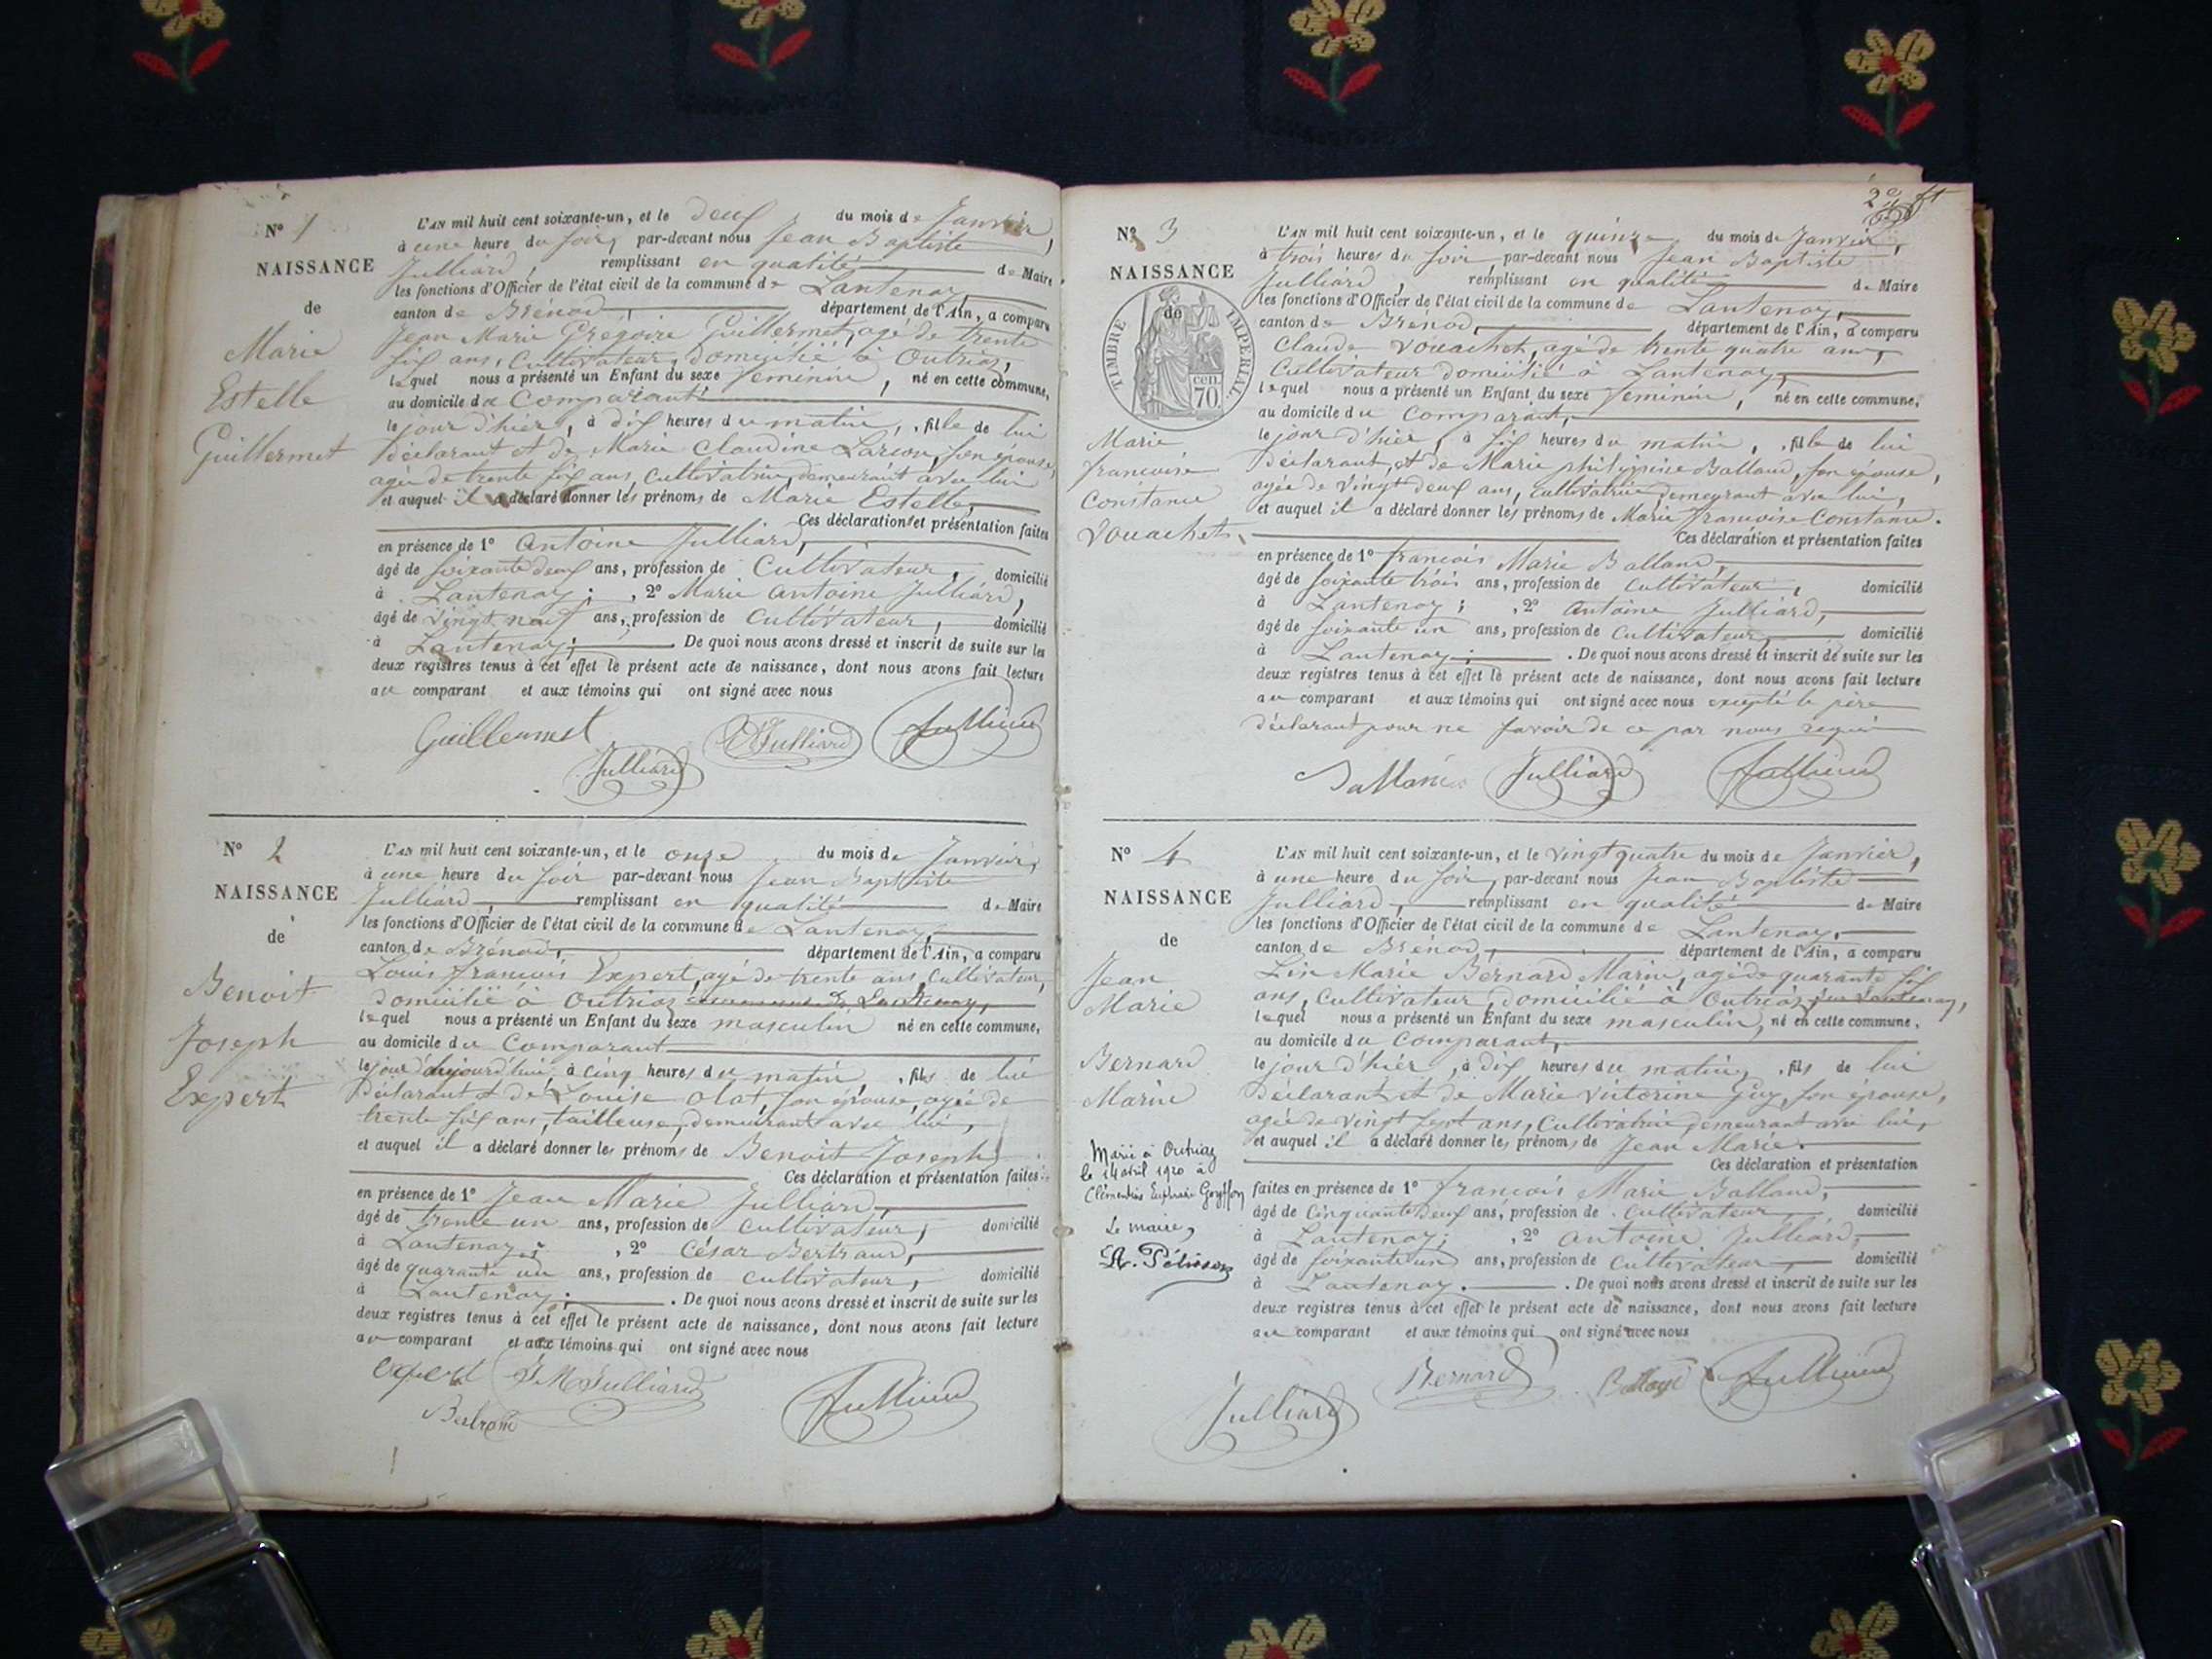 N° 1
NAISSANCE
de
Marie
Estelle
Guillermet
L'AN mil huit cent soixante-un, et le deux du mois de Janvier,
à une heure du soir, par-devant nous Jean Baptiste
Julliard, remplissant en qualité de Maire
les fonctions d'Officier de l'état civil de la commune de Lantenay,
canton de Brénod, département de l'Ain, a comparu
Jean Marie Grégoire Guillermet, agé de trente
six ans, Cultivateur, domicilié à Outriaz,
lequel nous a présenté un Enfant du sexe feminin, né en cette commune,
au domicile du Comparant
le jour d'hier, à dix heures du matin, fille de lui
déclarant et de Marie Claudine Larson, son épouse,
agée de trente six ans, cultivatrice, demeurant avec lui
et auquel il a déclaré donner les prénoms de Marie Estelle,
Ces déclaration et présentation faites
en présence de 1° Antoine Julliard,
âgé de soixante deux ans, profession de Cultivateur, domicilié
à Lantenay; , 2° Marie Antoine Julliard,
âgé de vingt neuf ans, profession de Cultivateur, domicilié
à Lantenay; De quoi nous avons dressé et inscrit de suite sur les
deux registres tenus à cet effet le présent acte de naissance, dont nous avons fait lecture
au comparant et aux témoins qui ont signé avec nous
Guillermet
Julliard
N° 2
NAISSANCE
de
Benoit
Joseph
Expert
L'AN mil huit cent soixante-un, et le onze du mois de Janvier,
à une heure du soir par-devant nous Jean Baptiste
Julliard, remplissant en qualité de Maire
les fonctions d'Officier de l'état civil de la commune de Lantenay,
canton de Brénod, département de l'Ain, a comparu
Louis françois Expert, agé de trente ans, Cultivateur,
domicilié à Outriaz commune de Lantenay,
lequel nous a présenté un Enfant du sexe masculin né en cette commune,
au domicile du Comparant
le jour d'aujourd'hui, à cinq heures du matin, fils de lui
déclarant & de Louise Olat, son épouse, agée de
trente six ans, tailleuse, demeurant avec lui,
et auquel il a déclaré donner les prénoms de Benoit Joseph
Ces déclaration et présentation faites
en présence de 1° Jean Marie Julliard,
âgé de trente un ans, profession de cultivateur, domicilié
à Lantenay; , 2° César Bertrand,
âgé de quarante un ans, profession de cultivateur, domicilié
à Lantenay; . De quoi nous avons dressé et inscrit de suite sur les
deux registres tenus à cet effet le présent acte de naissance, dont nous avons fait lecture
au comparant et aux témoins qui ont signé avec nous
expert J M Julliard
Bertrand
N° 3
NAISSANCE
de
TIMBRE IMPERIAL
70 cen.
Marie
francoise
Constance
Vouachet
L'AN mil huit cent soixante-un, et le quinze du mois de Janvier,
à trois heures du soir, par-devant nous Jean Baptiste
Julliard, remplissant en qualité de Maire
les fonctions d'Officier de l'état civil de la commune de Lantenay,
canton de Brénod, département de l'Ain, a comparu
Claude Vouachet, agé de trente quatre ans,
Cultivateur domicilié à Lantenay,
lequel nous a présenté un Enfant du sexe feminin, né en cette commune,
au domicile du Comparant,
le jour d'hier, à six heures du matin, fille de lui
déclarant, et de Marie philippine Balland, son épouse,
agée de vingt deux ans, cultivatrice demeurant avec lui,
et auquel il a déclaré donner les prénoms de Marie francoise Constance.
Ces déclaration et présentation faites
en présence de 1° françois Marie Balland,
âgé de soixante trois ans, profession de cultivateur, domicilié
à Lantenay; , 2° Antoine Julliard,
âgé de soixante un ans, profession de cultivateur, domicilié
à Lantenay; . De quoi nous avons dressé et inscrit de suite sur les
deux registres tenus à cet effet le présent acte de naissance, dont nous avons fait lecture
au comparant et aux témoins qui ont signé avec nous excepté le père
déclarant pour ne savoir de ce par nous requis
Julliard
N° 4
NAISSANCE
de
Jean
Marie
Bernard
Marin
Marié à Outriaz
le 14 avril 1920 à
Le maire,
L'AN mil huit cent soixante-un, et le vingt quatre du mois de Janvier,
à une heure du soir, par-devant nous Jean Baptiste
Julliard, remplissant en qualité de Maire
les fonctions d'Officier de l'état civil de la commune de Lantenay,
canton de Brénod, département de l'Ain, a comparu
Lin Marie Bernard Marin, agé de quarante six
ans, Cultivateur, domicilié à Outriaz sur Lantenay,
lequel nous a présenté un Enfant du sexe masculin, né en cette commune,
au domicile du Comparant,
le jour d'hier, à dix heures du matin, fils de lui
déclarant et de Marie Victorine Guy, son épouse,
agée de vingt sept ans, Cultivatrice demeurant avec lui,
et auquel il a déclaré donner les prénoms de Jean Marie.
Ces déclaration et présentation
faites en présence de 1° françois Marie Balland,
âgé de cinquante deux ans, profession de cultivateur, domicilié
à Lantenay; , 2° Antoine Julliard,
âgé de soixante un ans, profession de cultivateur, domicilié
à Lantenay. . De quoi nous avons dressé et inscrit de suite sur les
deux registres tenus à cet effet le présent acte de naissance, dont nous avons fait lecture
au comparant et aux témoins qui ont signé avec nous
Bernard
Julliard